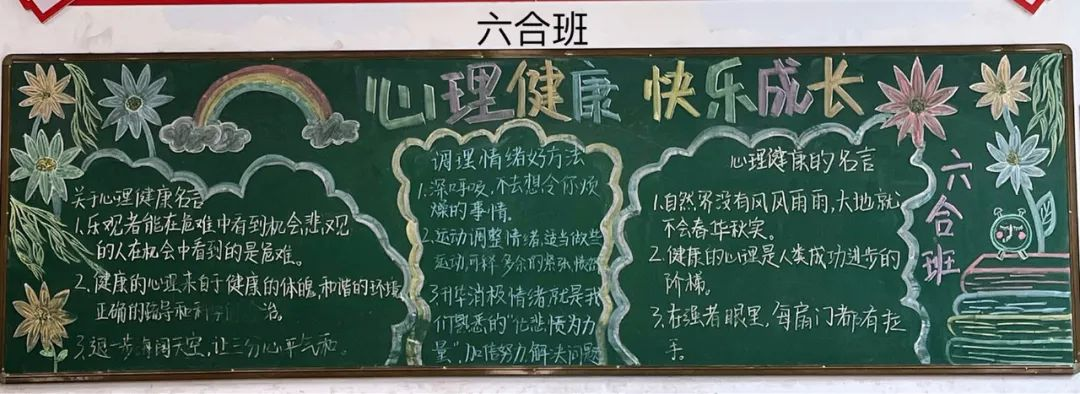 六合班
心理健康 快乐成长
关于心理健康名言
1.乐观者能在危难中看到机会悲观
的人在机会中看到的是危难。
2.健康的心理来自于健康的体魄,和谐的环境
正确的指导和 治。
3.退一步海阔天空,让三分心平气和。
调理情绪好方法
1.深呼吸,不去想令你烦
燥的事情。
2.运动调整情绪,适当做些
运动,可释多余的紧张
3.升华消极情绪就是我
们熟悉的“化悲愤为力
量”,加倍努力解决问题
心理健康的名言
1.自然界没有风风雨雨,大地就
不会春华秋实。
2.健康的心理是人类成功进步的
阶梯。
3.在强者眼里,每扇门都有拉
手。
六合班